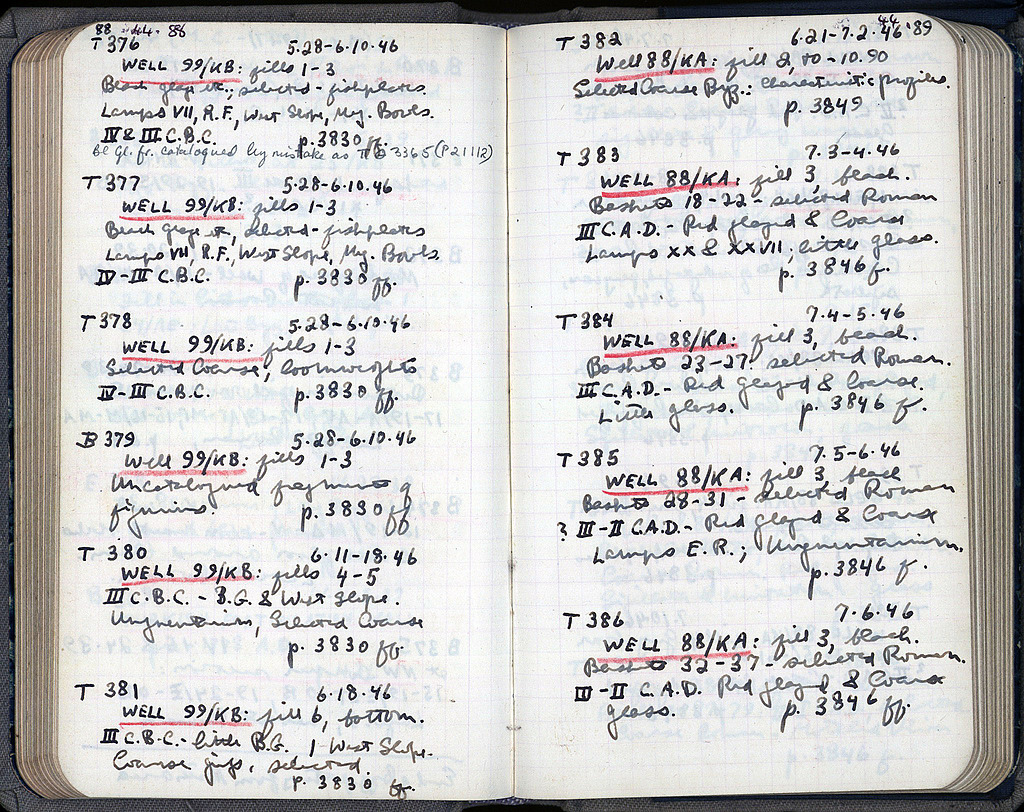 88
T 376 5.28-6.10.46
WELL 99/KB: fills 1-3
Black glaze etc., selected - fishplates
Lamps VII, R.F., West Slope, Meg. Bowls.
IV & III C.B.C. p. 3830 ff.
Bl Gl. fr. catalogued by mistake as 3365 (P21112)
T 377 5.28-6.10.46
WELL 99/KB: fills 1-3
Black glaze etc, selected - fishplates
Lamps VII, R.F., West Slope, Meg. Bowls.
IV-III C.B.C. p. 3830 ff.
T 378 5.28-6.10.46
WELL 99/KB: fills 1-3
Selected Coarse, loomweights
IV-III C.B.C. p. 3830 ff.
B 379 5.28-6.10.46
Well 99/KB: fills 1-3
Uncatalogued fragments of
figurines. p. 3830 ff
T 380 6.11-18.46
WELL 99/KB: fills 4-5
III C.B.C. - B.G. & West Slope.
Unguentarium, Selected Coarse
p. 3830 ff.
T 381 6.18.46
WELL 99/KB: fill 6, bottom.
III C.B.C. - little B.G. 1 West Slope.
Coarse jugs, selected.
p. 3830 ff.
89
T 382 6.21-7.2.46
Well 88/KA: fill 2, to -10.90
Selected Coarse Byz.: characteristic profiles.
p. 3849
T 383 7.3-4.46
WELL 88/KA: fill 3, beach.
Baskets 18-22 - selected Roman
III C.A.D. - Red glazed & Coarse
Lamps XX & XXVII, little glass.
p. 3846 f.
T 384 7.4-5.46
WELL 88/KA: fill 3, beach.
Baskets 23-27. selected Roman.
III C.A.D. - Red glazed & Coarse.
Little glass. p. 3846 f.
T 385 7.5-6.46
WELL 88/KA: fill 3, beach
Baskets 28-31 - selected Roman
? III-II C.A.D. - Red glazed & Coarse
Lamps E.R.; Unguentarium.
p. 3846 f.
T 386 7.6.46
WELL 88/KA: fill 3, beach.
Baskets 32-37 - selected Roman.
III-II C.A.D. Red glazed & Coarse
glass. p. 3846 ff.